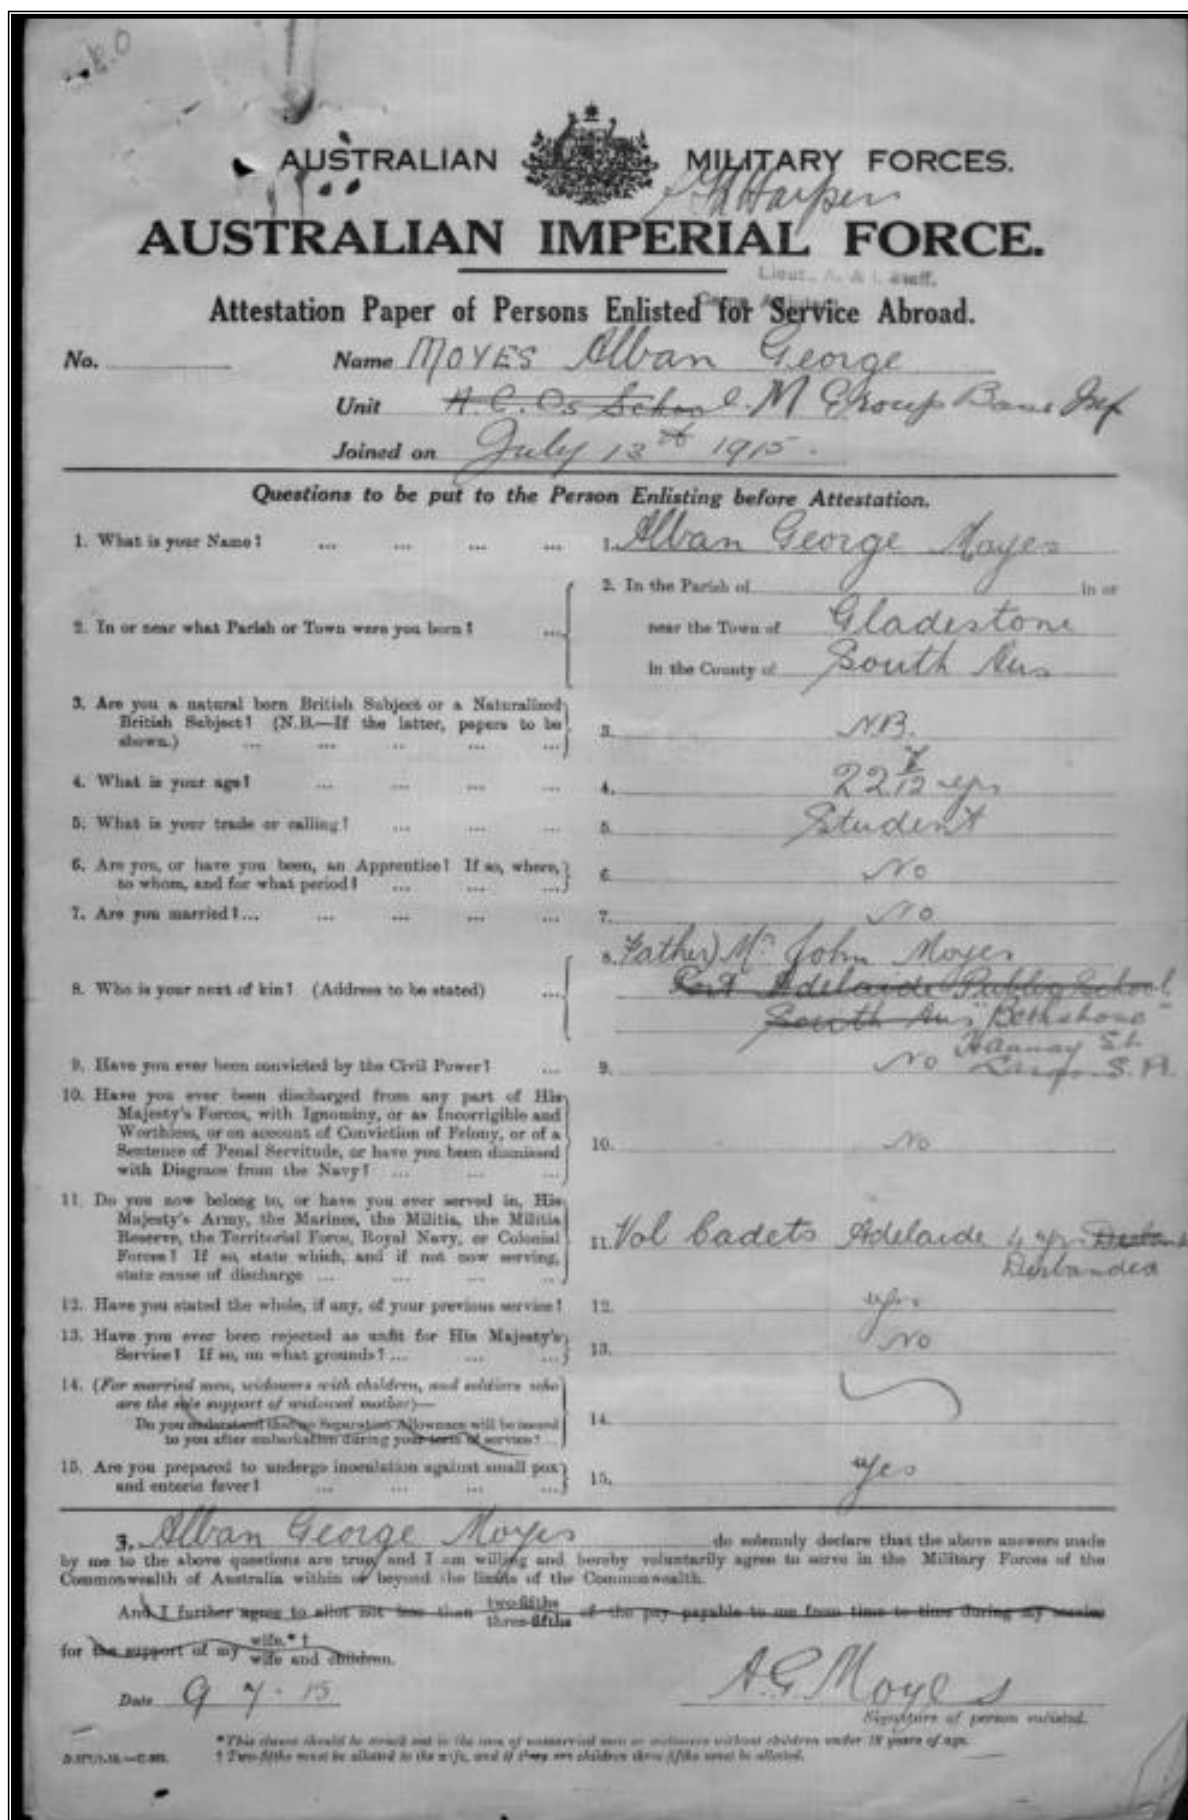 AUSTRALIAN MILITARY FORCES.
Harper
AUSTRALIAN IMPERIAL FORCE.
Lieut., A. & I. Staff,
Attestation Paper of Persons Enlisted for Service Abroad.
No. Name MOYES Alban George
Unit A.C.Os School. M Group Base Inf
Joined on July 13th 1915.
Questions to be put to the Person Enlisting before Attestation.
1. What is your Name? ... ... ... ... 1. Alban George Moyes
2. In the Parish of in or
2. In or near what Parish or Town were you born? ... near the Town of Gladestone
in the County of South Aus
3. Are you a natural born British Subject or a Naturalized
British Subject? (N.B.—If the latter, papers to be 3. N.B.
shown.) ... ... .. ... ...
4. What is your age? ... ... ... ... 4. 22 7/12 yrs
5. What is your trade or calling? ... ... ... 5. Student
6. Are you, or have you been, an Apprentice? If so, where, 6. No
to whom, and for what period? ... ... ...
7. Are you married?... ... ... ... ... 7. No
8. Father) Mr John Moyes
8. Who is your next of kin? (Address to be stated) ... Port Adelaide Public School
South Aus "
Hannay St
9. Have you ever been convicted by the Civil Power? ... 9. No S.A.
10. Have you ever been discharged from any part of His
Majesty's Forces, with Ignominy, or as Incorrigible and
Worthless, or on account of Conviction of Felony, or of a
Sentence of Penal Servitude, or have you been dismissed 10. No
with Disgrace from the Navy? ... ... ...
11. Do you now belong to, or have you ever served in, His
Majesty's Army, the Marines, the Militia, the Militia
Reserve, the Territorial Force, Royal Navy, or Colonial
Forces? If so, state which, and if not now serving, 11. Vol Cadets Adelaide 4 yrs
state cause of discharge ... ... ... ... Disbanded
12. Have you stated the whole, if any, of your previous service? 12. yes
13. Have you ever been rejected as unfit for His Majesty's 13. No
Service? If so, on what grounds? ... ... ...
14. (For married men, widowers with children, and soldiers who
are the sole support of widowed mother)—
Do you understand that no Separation Allowance will be issued 14.
to you after embarkation during your term of service? ...
15. Are you prepared to undergo inoculation against small pox 15. yes
and enteric fever? ... ... ...
3. Alban George Moyes do solemnly declare that the above answers made
by me to the above questions are true, and I am willing and hereby voluntarily agree to serve in the Military Forces of the
Commonwealth of Australia within or beyond the limits of the Commonwealth.
And I further agree to allot not less than two-fifths three-fifths of the pay payable to me from time to time during my service
for the support of my wife.* † wife and children.
Date 9 7 - 15 A.G Moyes
Signature of person enlisted.
*This clause should be struck out in the case of unmarried men or widowers without children under 18 years of age.
† Two-fifths must be allotted to the wife, and if they are children three-fifths must be allotted.